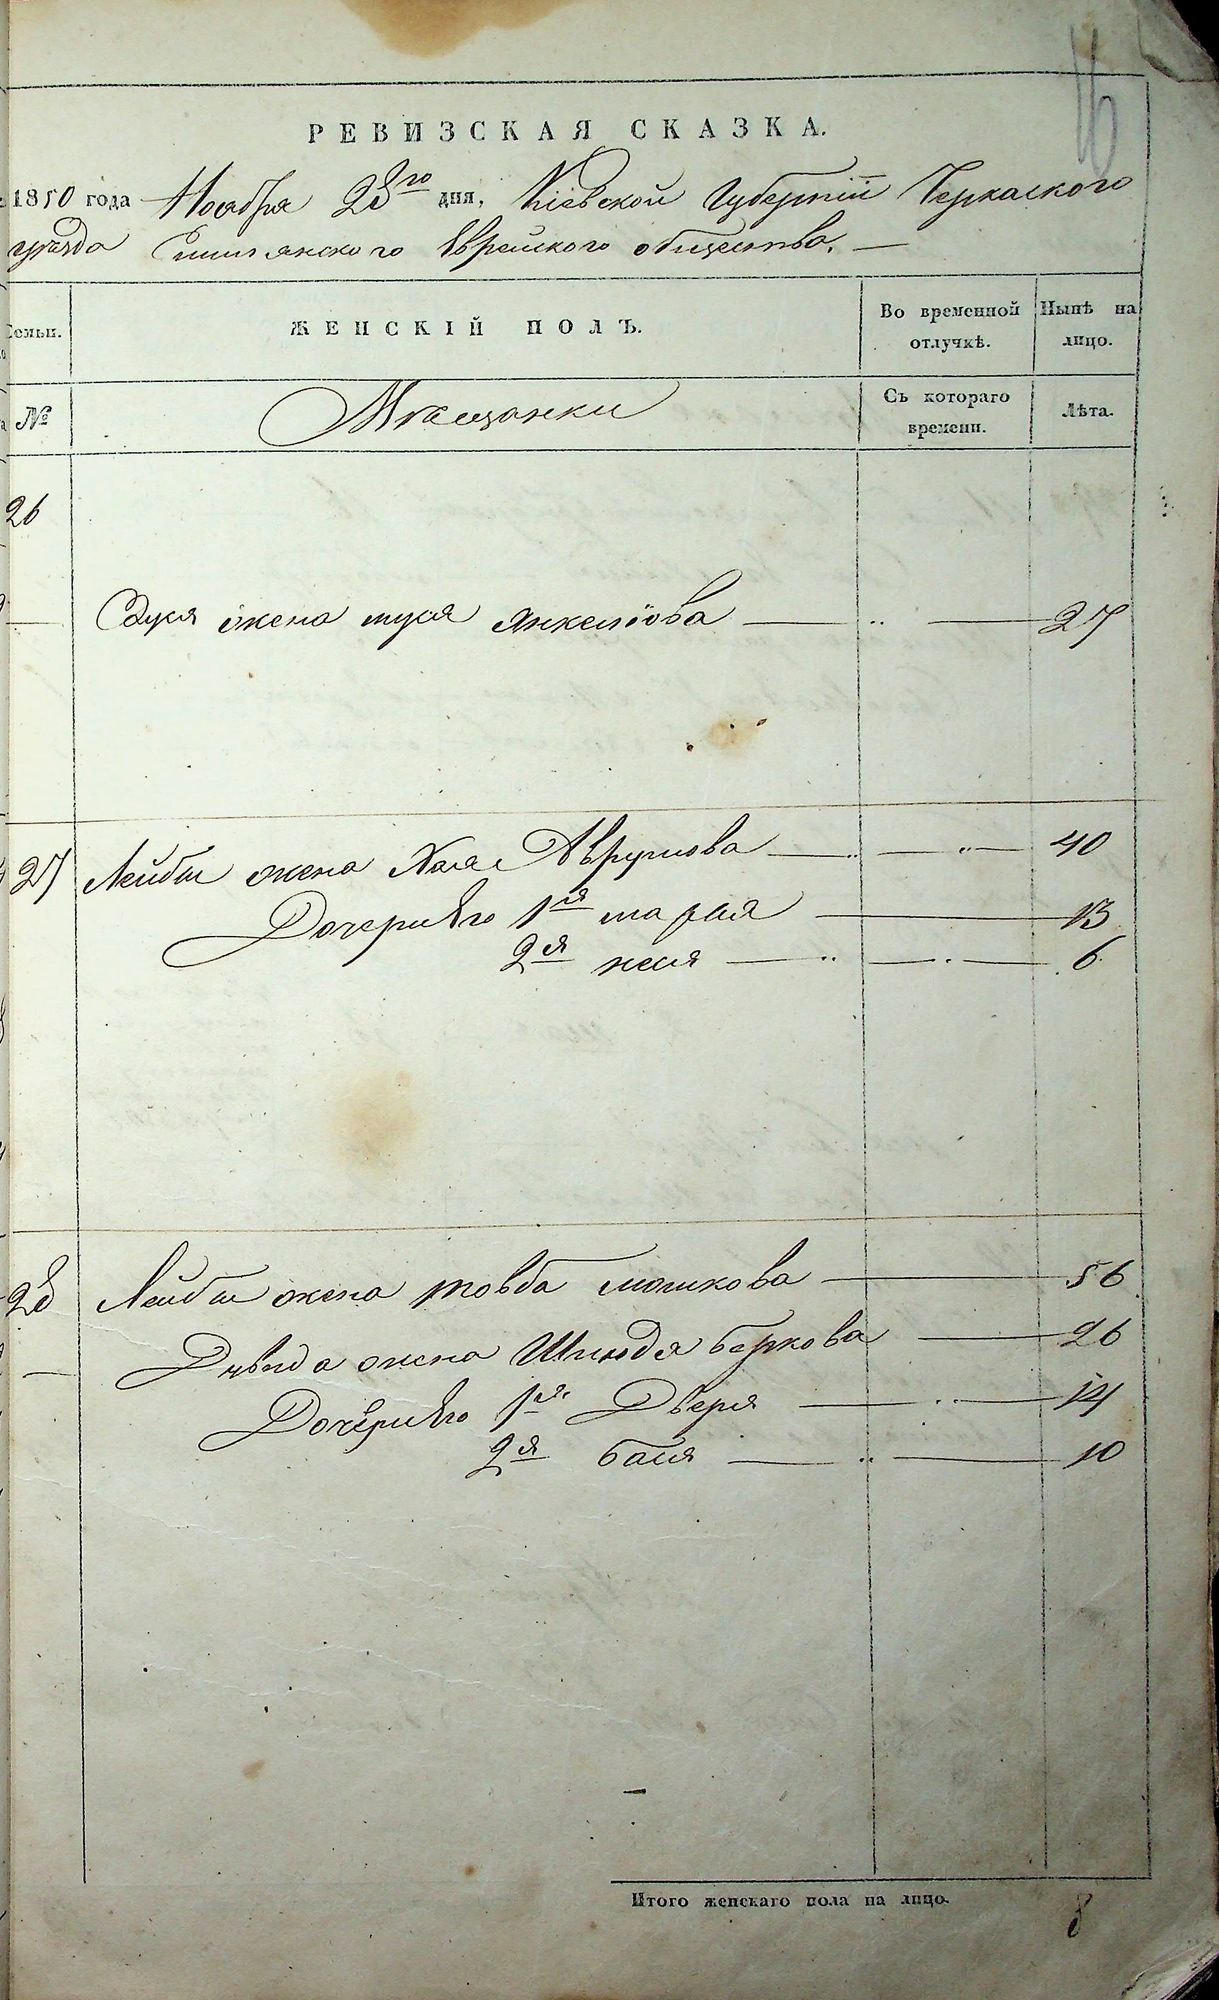 16
РЕВИЗСКАЯ СКАЗКА.
1850 года Ноября 28го дня, Кіевской Губерніи Черкаского
уезда Еврейского общества. —
Семьи. ЖЕНСКІЙ ПОЛЪ. Во временной отлучкѣ. Нынѣ на лицо.
№ Мещанки Съ котораго времени. Лѣта.
26
жена Янкелiова 27
27 Лейбы жена Хая Аврумова 40
Дочери его 1я 13
2я 6
28 Лейбы жена товба мошкова 56
жена Шиндя беркова 26
Дочери его 1я Двера 14
2я бася 10
Итого женскаго пола на лицо. 8